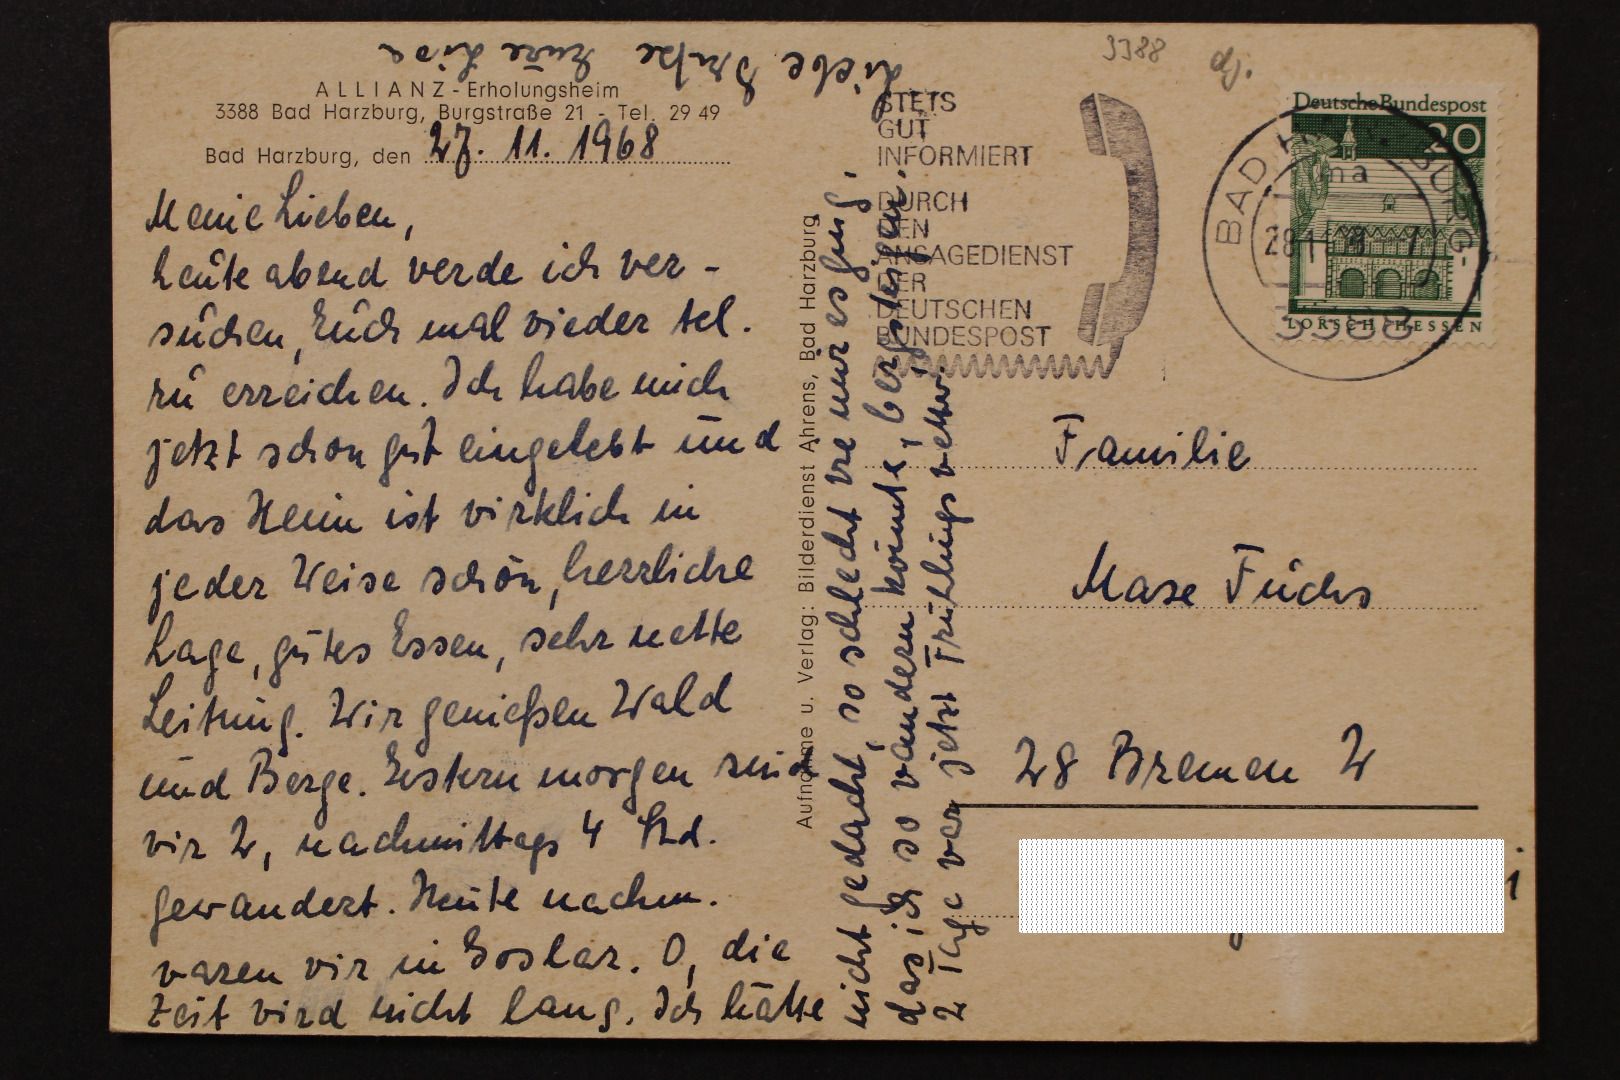 ALLIANZ - Erholungsheim
3388 Bad Harzburg, Burgstraße 21 - Tel. 29 49
Bad Harzburg, den 27. 11. 1968
Meine Lieben,
heute abend werde ich ver-
suchen, Euch mal wieder tel.
zu erreichen. Ich habe mich
jetzt schon gut eingelebt und
das Heim ist wirklich in
jeder Weise schön, herrliche
Lage, gutes Essen, sehr nette
Leitung. Wir genießen Wald
und Berge. Gestern morgen sind
wir 2, nachmittags 4 Std.
gewandert. Heute nachm.
waren wir in Goslar. O, die
Zeit wird nicht lang. Ich hätte
nicht gedacht, so schlecht wie mir es ging,
das ich so wandern könnte, bergsteigen.
2 Tage war jetzt Frühlingswetter.
Liebe Grüße Eure Lisa
Aufnahme u. Verlag: Bilderdienst Ahrens, Bad Harzburg
3388
STETS
GUT
INFORMIERT
DURCH
DEN
ANSAGEDIENST
DER
DEUTSCHEN
BUNDESPOST
Deutsche Bundespost
20
LORSCH/HESSEN
BAD HARZBURG
3388
Familie
Fuchs
28 Bremen 2